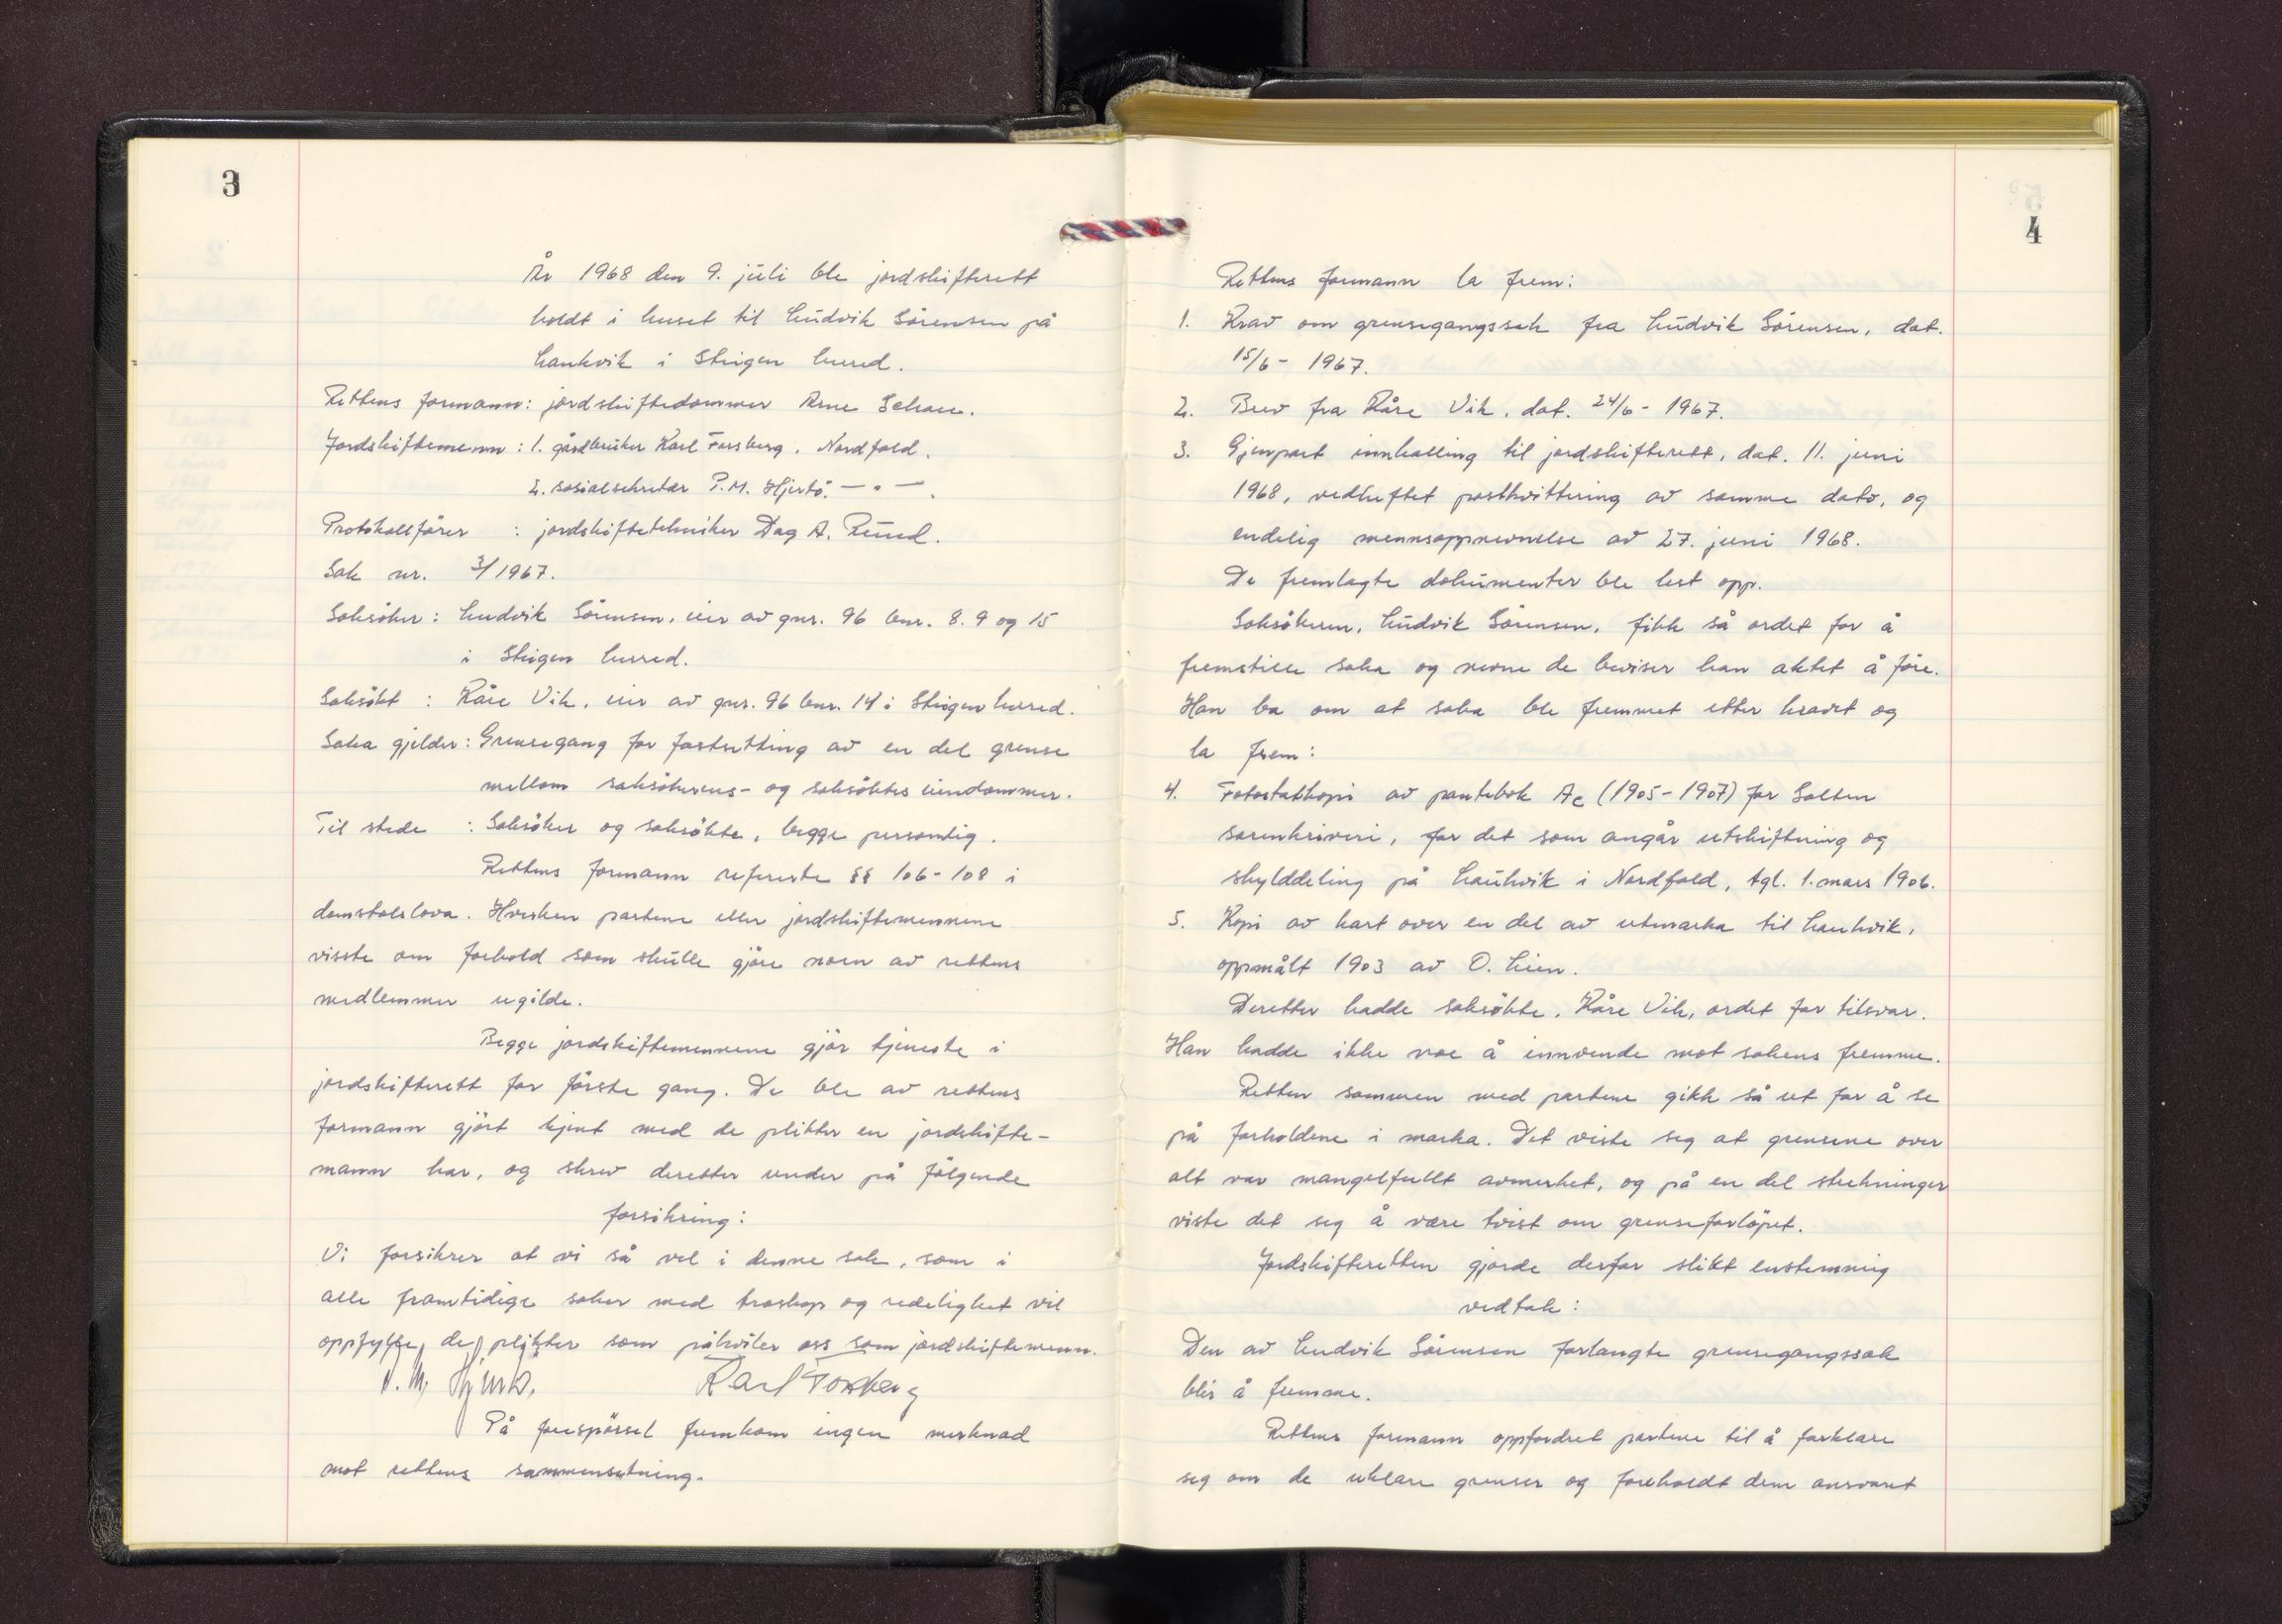 3
År 1968 den 9. juli ble jordskifterett
holdt i huset til Ludvik Sørensen på
Laukvik i Steigen herred.
Rettens formann: jordskiftedommer Arne Schau.
Jordskiftemenn: 1. gårdbruker Karl Forsberg, Nordfold.
2. sosialsekretær P.M. Hjertö. — " — .
Protokollförer : jordskiftetekniker Dag A. Ruud.
Sak nr. 3/1967.
Saksöker: Ludvik Sörensen, eier av gnr. 96 bnr. 8. 9 og 15
i Steigen herred.
Saksökt : Kåre Vik, eier av gnr. 96 bnr. 14 i Steigen herred.
Saka gjelder: Grensegang for fastsetting av en del grense
mellom saksökerens- og saksöktes eiendommer.
Til stede : Saksöker og saksökte, begge personlig.
Rettens formann refererte §§ 106-108 i
domstolslova. Hverken partene eller jordskiftemennene
visste om forhold som skulle gjöre noen av rettens
medlemmer ugilde.
Begge jordskiftemennene gjör tjeneste i
jordskifterett for förste gang. De ble av rettens
formann gjört kjent med de plikter en jordskifte-
mann har, og skrev deretter under på fölgende
forsikring:
Vi forsikrer at vi så vel i denne sak, som i
alle framtidige saker med troskap og redelighet vil
oppfylle de plikter som påhviler oss som jordskiftemenn.
P. M. Hjertö. Karl Forsberg
På forespörsel fremkom ingen merknad
mot rettens sammensetning.
4
Rettens formann la frem:
1. Krav om grensegangssak fra Ludvik Sörensen, dat.
15/6- 1967.
2. Brev fra Kåre Vik, dat. 24/6- 1967.
3. Gjenpart innkalling til jordskifterett, dat. 11. juni
1968, vedheftet postkvittering av samme dato, og
endelig mennsoppnevnelse av 27. juni 1968.
De fremlagte dokumenter ble lest opp.
Saksökeren, Ludvik Sörensen, fikk så ordet for å
fremstille saka og nevne de beviser han aktet å före.
Han ba om at saka ble fremmet etter kravet og
la frem:
4. Fotostatkopi av pantebok Ac (1905-1907) for Salten
sorenkriveri, for det som angår utskiftning og
skylddeling på Laukvik i Nordfold, tgl. 1. mars 1906.
5. Kopi av kart over en del av utmarka til Laukvik,
oppmålt 1903 av O. Lien.
Deretter hadde saksökte, Kåre Vik, ordet for tilsvar.
Han hadde ikke noe å innvende mot sakens fremme.
Retten sammen med partene gikk så ut for å se
på forholdene i marka. Det viste seg at grensene over
alt var mangelfullt avmerket, og på en del strekninger
viste det seg å være tvist om grenseforlöpet.
Jordskifteretten gjorde derfor slikt enstemmig
vedtak:
Den av Ludvik Sörensen forlangte grensegangssak
blir å fremme.
Rettens formann oppfordret partene til å forklare
seg om de uklare grenser og foreholdt dem ansvaret